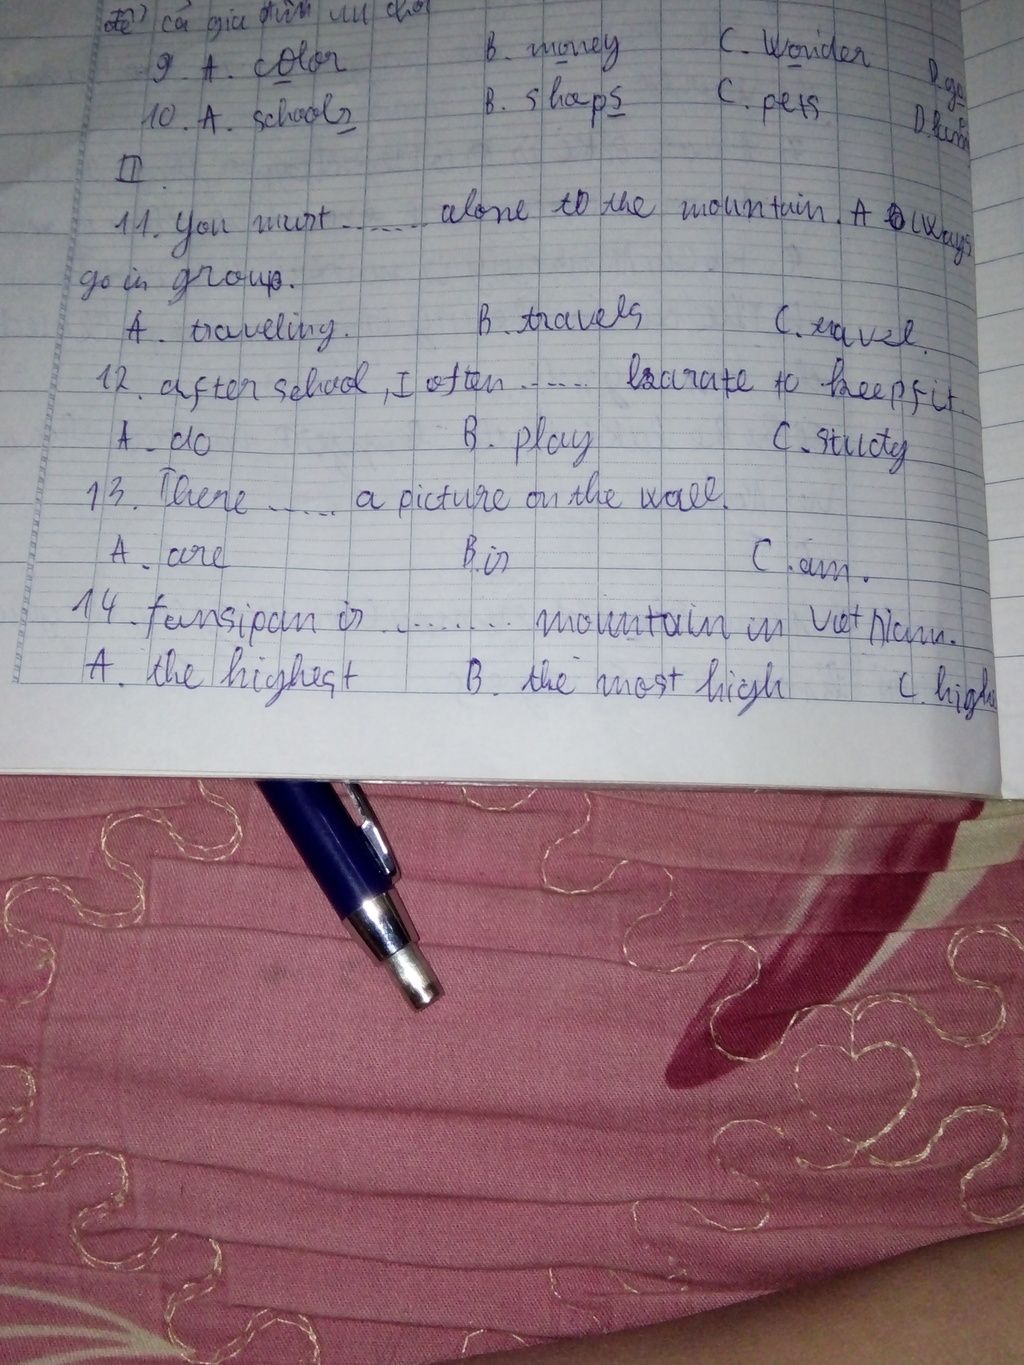 cả gia
9. A. color B. money C. Wonder D. go
10. A. schools B. shops C. pets
II
11. You must ....... alone to the mountain. Always
go in group.
A. traveling. B. travels C. travel.
12. after school, I often ...... karate to keep fit.
A. do B. play C. study
13. There ...... a picture on the wall.
A. are B. is C. am.
14. fansipan is ......... mountain in Viet Nam.
A. the highest B. the most high C. high